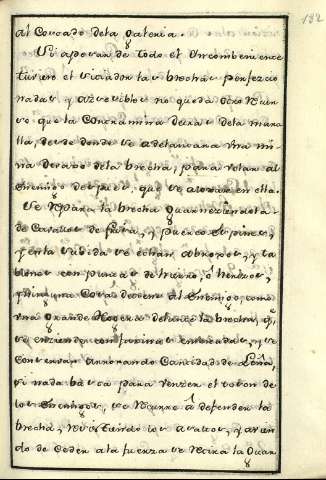 182
al Costado dela Galeria.
Si apesar de todo el Incombeniente
tubiere el Sitiador la brecha perfeccio
nada, y accesible, no queda otro Recur
so que la Contramina detras dela mura
lla, desde donde se adelantara una mi
na debaxo dela brecha, para volar al
Enemigo despues, que se aloxan en ella.
Se Repara la brecha Guarneciendola
de Cavallos de frisa, y puerco Espines,
y enla subida se echan Abrojos, y ta
blones con puntas de hierro,
ninguna Cosa detiene al Enemigo, como
una Grande Hoguera delante la brecha, q.e
se enciende con faxina embreada, y se
conserva arrojando Cantidad de Leña,
si nada basta para vencer el teson de
los Enemigos, se Recurre â defender la
brecha, Resistiendo los asaltos, y avien
do de Ceder ala fuerza se Retira la Guar